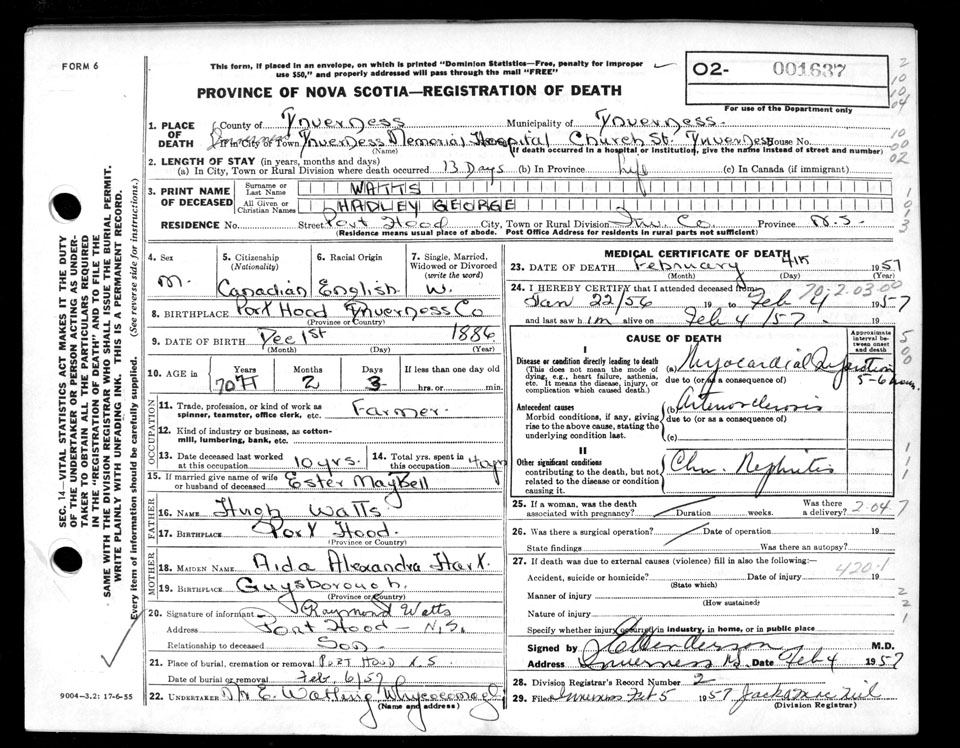 FORM 6
This form, if placed in an envelope, on which is printed "Dominion Statistics—Free, penalty for improper
use $50," and properly addressed will pass through the mail "FREE"
O2- 001637
PROVINCE OF NOVA SCOTIA—REGISTRATION OF DEATH
For use of the Department only
1. PLACE OF DEATH
County of Inverness Municipality of Inverness.
If in City or Town Inverness Memorial Hospital Church St. Inverness House No.
(Name) (If death occurred in a hospital or institution, give the name instead of street and number)
2. LENGTH OF STAY (in years, months and days)
(a) In City, Town or Rural Division where death occurred 13 Days (b) In Province life (c) In Canada (if immigrant)
3. PRINT NAME OF DECEASED
Surname or Last Name WATTS
All Given or Christian Names HADLEY GEORGE
RESIDENCE No. Street Port Hood City, Town or Rural Division Inv. Co. Province N.S.
(Residence means usual place of abode. Post Office Address for residents in rural parts not sufficient)
4. Sex M.
5. Citizenship (Nationality) Canadian
6. Racial Origin English
7. Single, Married, Widowed or Divorced (write the word) W.
8. BIRTHPLACE Port Hood Inverness Co
(Province or Country)
9. DATE OF BIRTH Dec 1st 1886
(Month) (Day) (Year)
10. AGE in Years 70 Months 2 Days 3 If less than one day old hrs. or min.
OCCUPATION
11. Trade, profession or kind of work as spinner, teamster, office clerk, etc. Farmer.
12. Kind of industry or business, as cotton-mill, lumbering, bank, etc.
13. Date deceased last worked at this occupation 10 yrs.
14. Total yrs. spent in this occupation
15. If married give name of wife or husband of deceased Ester Maybell
FATHER
16. NAME Hugh Watts
17. BIRTHPLACE Port Hood.
(Province or Country)
MOTHER
18. MAIDEN NAME Aida Alexandra
19. BIRTHPLACE Guysborough.
(Province or Country)
20. Signature of informant Raymond Watts
Address Port Hood — N.S.
Relationship to deceased Son
21. Place of burial, cremation or removal PORT HOOD N.S
Date of burial or removal Feb. 6/57
22. UNDERTAKER
(Name and address)
MEDICAL CERTIFICATE OF DEATH
23. DATE OF DEATH February 4th 1957
(Month) (Day) (Year)
24. I HEREBY CERTIFY that I attended deceased from
70-2-03-00
Jan 22/56 19 to Feb 4 1957
and last saw him alive on Feb 4/57. 19
CAUSE OF DEATH
Approximate interval between onset and death
I
Disease or condition directly leading to death
(This does not mean the mode of dying, e.g., heart failure, asthenia, etc. It means the disease, injury, or complication which caused death.)
(a) Myocardial
due to (or as a consequence of) 5-6 hours.
Antecedent causes
Morbid conditions, if any, giving rise to the above cause, stating the underlying condition last.
(b) Arteriosclerosis
due to (or as a consequence of)
(c)
II
Other significant conditions
contributing to the death, but not related to the disease or condition causing it.
Chr. Nephritis
25. If a woman, was the death associated with pregnancy? Duration weeks. Was there a delivery? 2-04
26. Was there a surgical operation? Date of operation 19
State findings Was there an autopsy?
27. If death was due to external causes (violence) fill in also the following:— 420-1
Accident, suicide or homicide? Date of injury 19
(State which)
Manner of injury
(How sustained)
Nature of injury
Specify whether injury occurred in industry, in home, or in public place
Signed by M.D.
Address Inverness N.S. Date Feb 4 1957
28. Division Registrar's Record Number 2
29. Filed Inverness Feb 5 1957
(Division Registrar)
9004-3.2: 17-6-55
SEC. 14—VITAL STATISTICS ACT MAKES IT THE DUTY
OF THE UNDERTAKER OR PERSON ACTING AS UNDER-
TAKER TO OBTAIN ALL THE PARTICULARS REQUIRED
IN THE "REGISTRATION OF DEATH" AND TO FILE THE
SAME WITH THE DIVISION REGISTRAR WHO SHALL ISSUE THE BURIAL PERMIT.
WRITE PLAINLY WITH UNFADING INK. THIS IS A PERMANENT RECORD.
Every item of information should be carefully supplied. (See reverse side for instructions.)